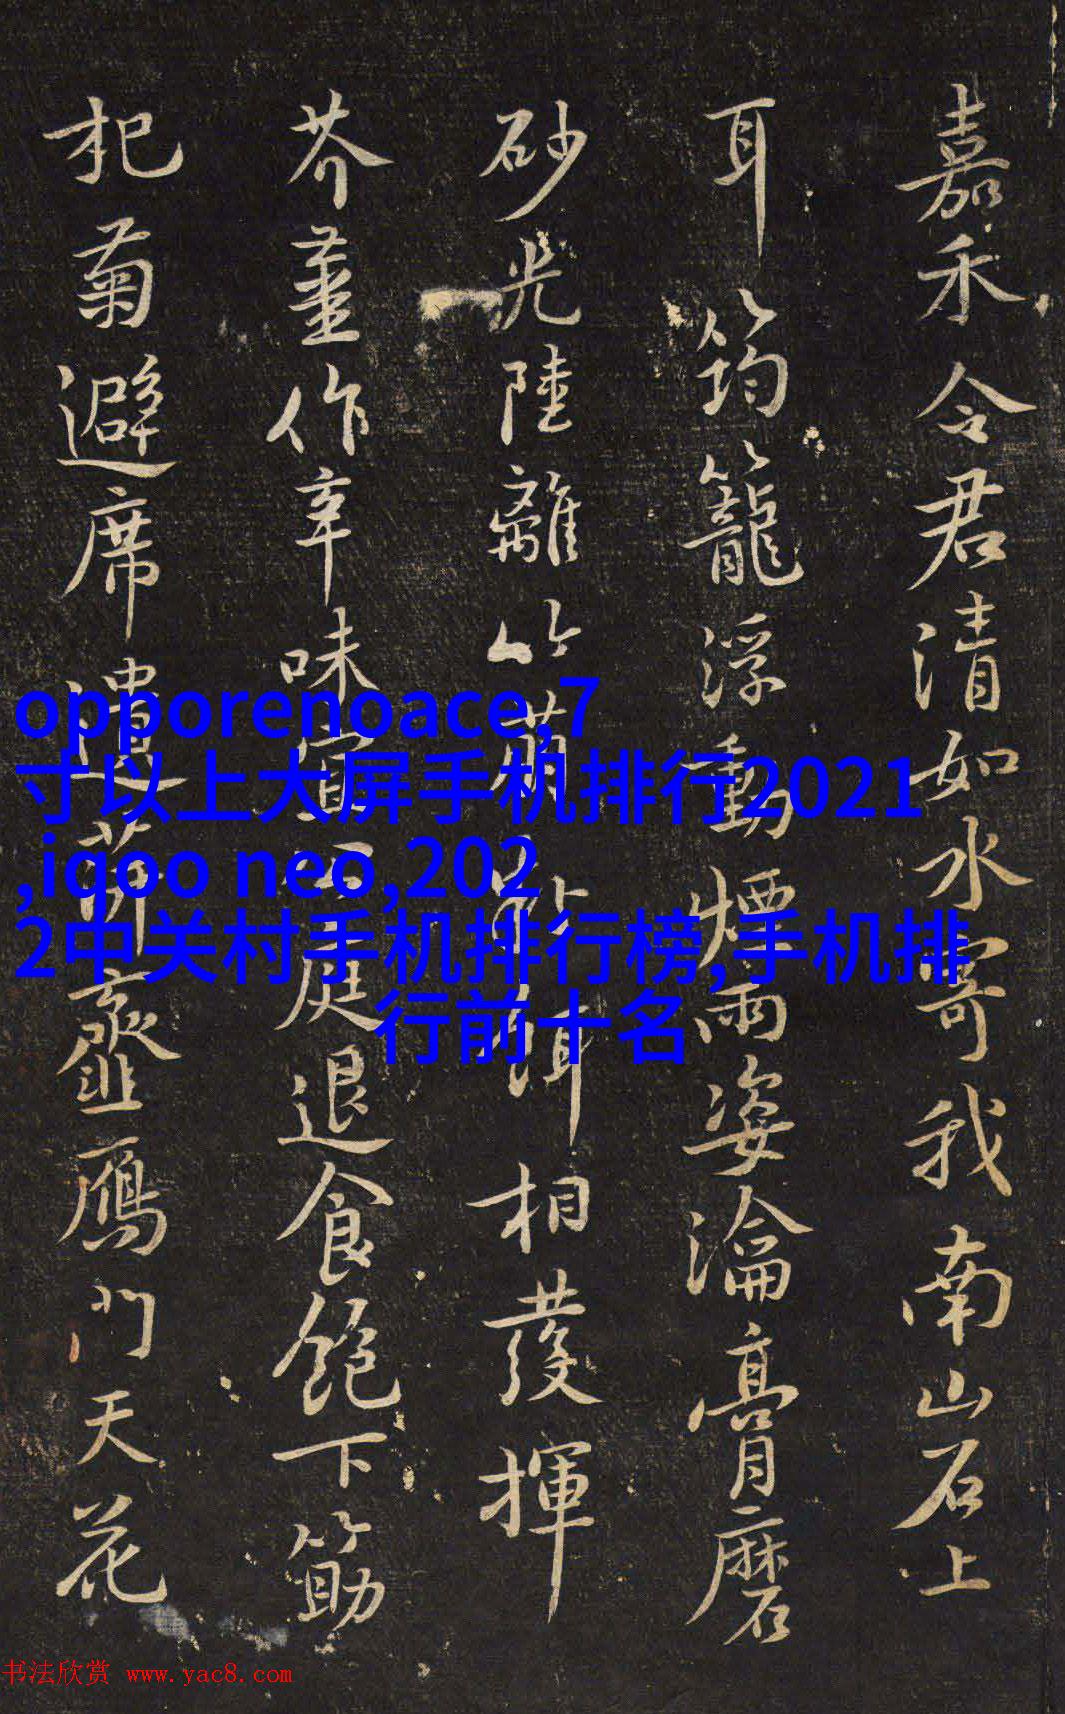 嘉禾令君清如水寄我南山石上
耳筠籠浮動煙雨姿淪膏磨
砂光陸離竹萌相發揮
芥薑作辛味退食飽下筯
杞菊避席遺萍虀雁門天花
opporenoace,7
寸以上大屏手机排行2021
,iqoo neo,202
2中关村手机排行榜,手机排
行前十名
书法欣赏 www.yac8.com